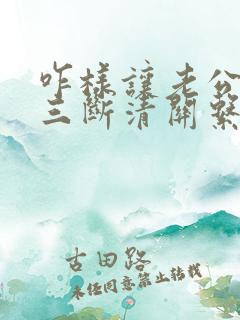 咋样让老公
三断清关系
古田路
未经同意禁止转载